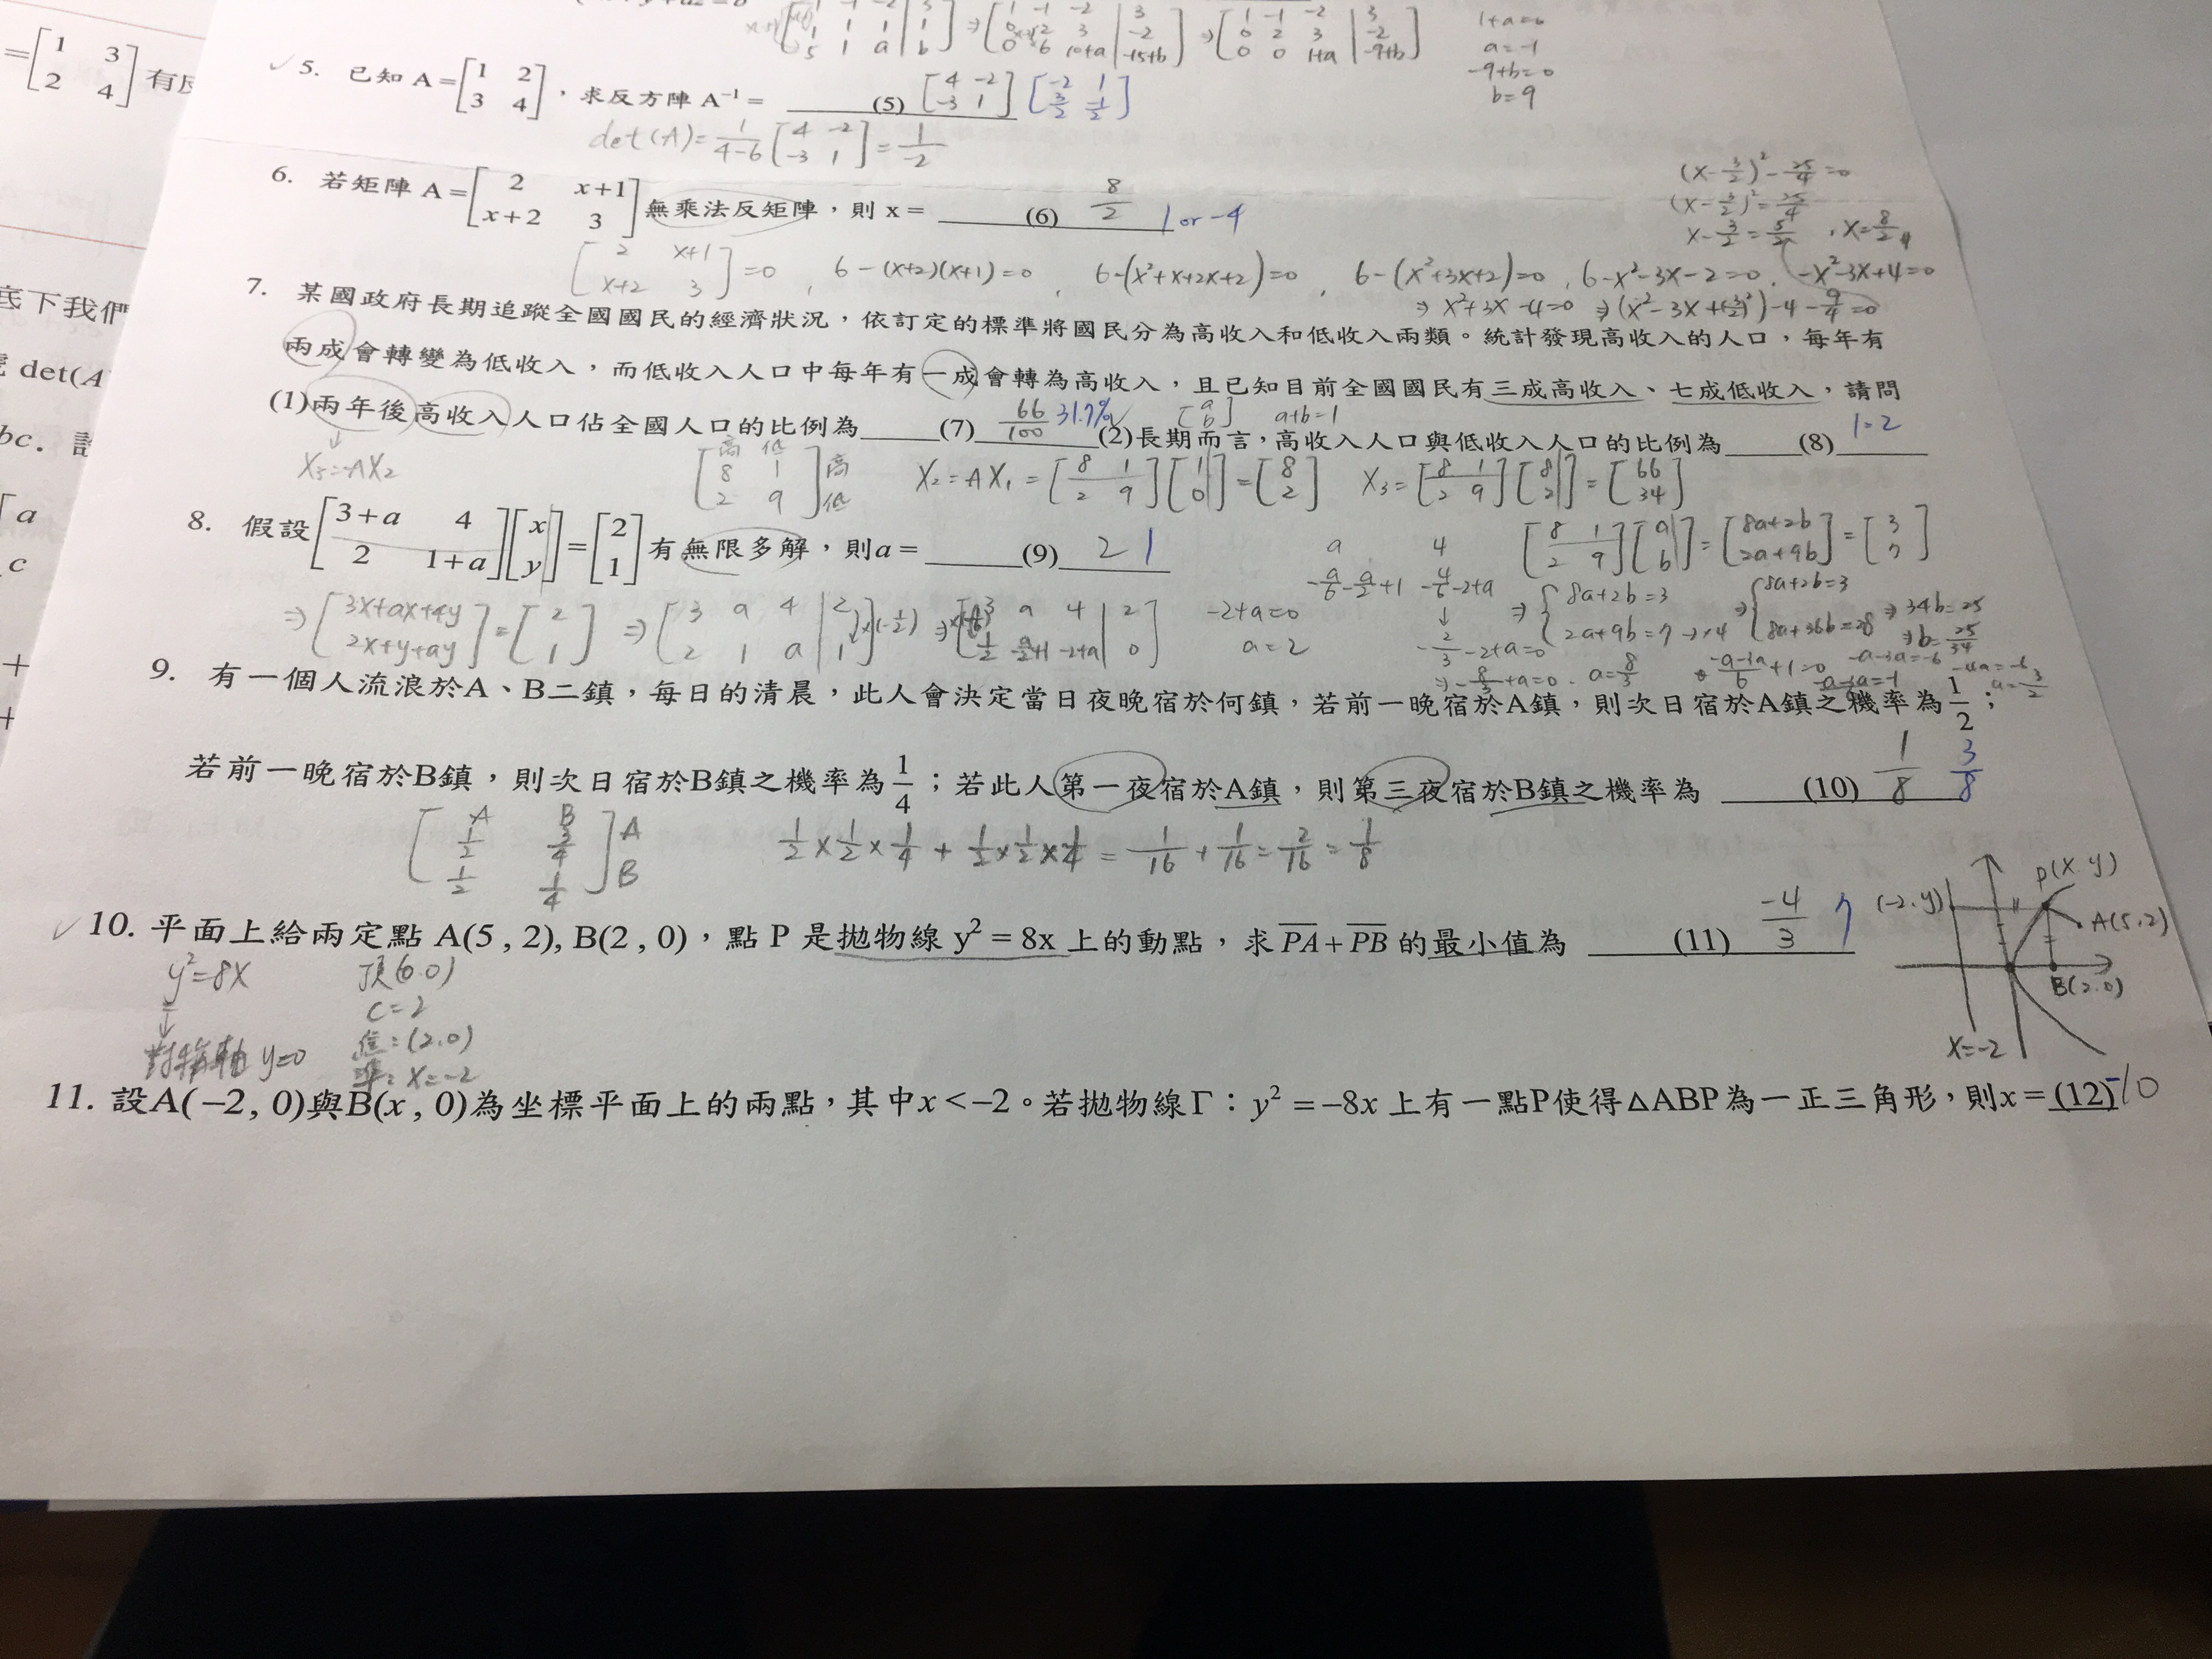 = [1 3
2 4] 有反
底下我們
det(A
bc.
[a
c
[1 -1 -2 | 3
1 1 1 | 1
5 1 a | b] ⇒ [1 -1 -2 | 3
0 2 3 | -2
0 6 10+a | -15+b] ⇒ [1 -1 -2 | 3
0 2 3 | -2
0 0 1+a | -9+b]
1+a=0
a=-1
-9+b=0
b=9
5. 已知 A=[1 2
3 4],求反方陣 A⁻¹= (5) [4 -2
-3 1] [-2 1
3/2 -1/2]
det(A)=1/(4-6) [4 -2
-3 1] = 1/-2
6. 若矩陣 A=[2 x+1
x+2 3] 無乘法反矩陣,則 x= (6) 8/2 1 or -4
(x-3/2)²-25/4=0
(x-3/2)²=25/4
x-3/2=5/2, x=8/2
[2 x+1
x+2 3]=0, 6-(x+2)(x+1)=0, 6-(x²+x+2x+2)=0, 6-(x²+3x+2)=0, 6-x²-3x-2=0, -x²-3x+4=0
⇒ x²+3x-4=0 ⇒ (x²-3x+(3/2)²)-4-9/4=0
7. 某國政府長期追蹤全國國民的經濟狀況,依訂定的標準將國民分為高收入和低收入兩類。統計發現高收入的人口,每年有
兩成會轉變為低收入,而低收入人口中每年有一成會轉為高收入,且已知目前全國國民有三成高收入、七成低收入,請問
(1)兩年後高收入人口佔全國人口的比例為 (7) 66/100 31.7% [a
b] a+b=1 (2)長期而言,高收入人口與低收入人口的比例為 (8) 1:2
X₃=AX₂
高 低
[8 1
2 9] 高
低
X₂=AX₁=[8 1
2 9][1
0]=[8
2] X₃=[8 1
2 9][8
2]=[66
34]
8. 假設[3+a 4
2 1+a][x
y]=[2
1]有無限多解,則a= (9) 2 1
[8 1
2 9][a
b]=[8a+2b
2a+9b]=[3
7]
a 4
-a/6-a/2+1 -4/6-2+a
⇒ {8a+2b=3
2a+9b=7→×4 ⇒ {8a+2b=3
8a+36b=28 ⇒ 34b=25
⇒ b=25/34
⇒ [3x+ax+4y
2x+y+ay]=[2
1] ⇒ [3 a 4 | 2
2 1 a | 1]×(-1/2) ⇒ [3 a 4 | 2
1/2 -a/2+1 -2+a | 0] -2+a=0
a=2
-2/3-2+a=0
⇒ -8/3+a=0. a=8/3
(-a-3a)/6+1=0 -a-3a=-6 -4a=-6
a=3/2
9. 有一個人流浪於A、B二鎮,每日的清晨,此人會決定當日夜晚宿於何鎮,若前一晚宿於A鎮,則次日宿於A鎮之機率為1/2;
若前一晚宿於B鎮,則次日宿於B鎮之機率為1/4;若此人第一夜宿於A鎮,則第三夜宿於B鎮之機率為 (10) 1/8 3/8
A B
[1/2 3/4
1/2 1/4] A
B
1/2×1/2×1/4+1/2×1/2×1/4=1/16+1/16=2/16=1/8
10. 平面上給兩定點 A(5 , 2), B(2 , 0),點 P 是拋物線 y² = 8x 上的動點,求 PA + PB 的最小值為 (11) -4/3 7
(-2,y) P(x,y) A(5,2) B(2,0) x=-2
y²=8x
對稱軸 y=0
頂(0,0)
c=2
焦:(2,0)
準:x=-2
11. 設A(−2 , 0)與B(x , 0)為坐標平面上的兩點,其中x < −2。若拋物線Γ:y² = −8x 上有一點P使得△ABP為一正三角形,則x= (12) -10